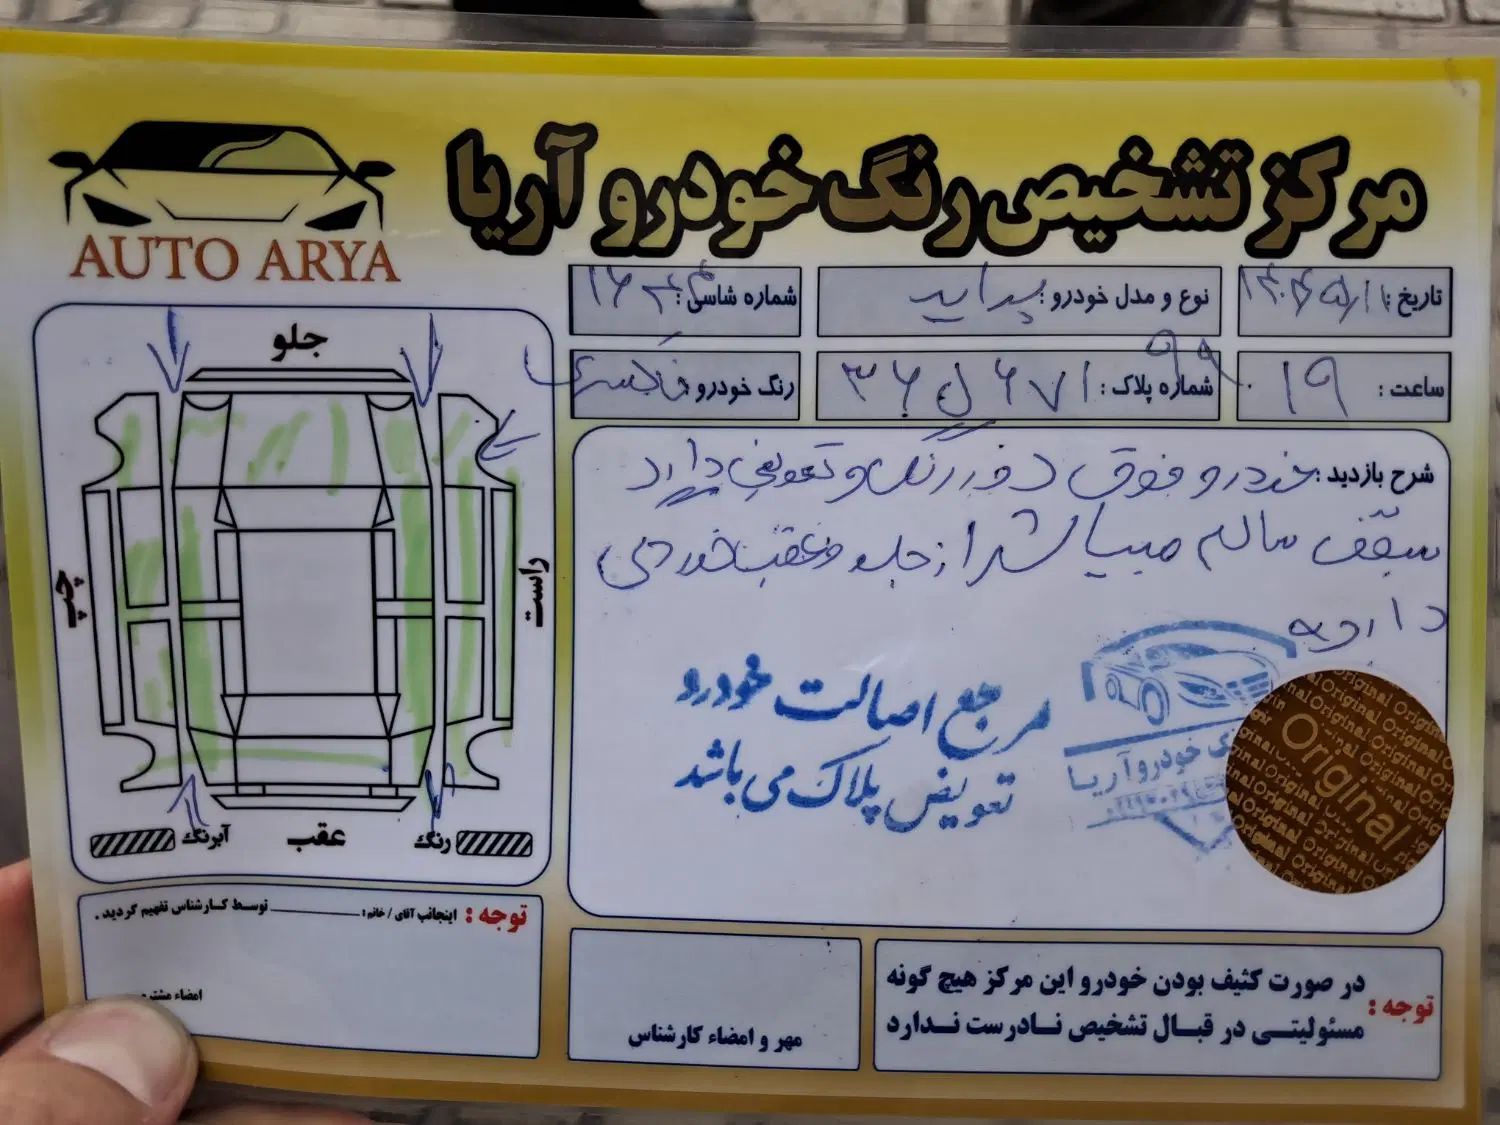 مرکز تشخیص رنگ خودرو آریا
AUTO ARYA
تاریخ :
نوع و مدل خودرو : پراید
شماره شاسی :
ساعت : ۱۹
شماره پلاک : ۳۶ ل ۶۷۱
۹۹
رنگ خودرو خاکستری
جلو
چپ
راست
عقب
آبرنگ
رنگ
شرح بازدید : خودرو فوق دور رنگ و تعویض دارد
سقف سالم میباشد از جلو و عقب خوردگی
دارد
مرجع اصالت خودرو
تعویض پلاک می باشد
رنگ خودرو آریا
Original
توجه : اینجانب آقای / خانم : توسط کارشناس تفهیم گردید .
امضاء
مهر و امضاء کارشناس
توجه : در صورت کثیف بودن خودرو این مرکز هیچ گونه
مسئولیتی در قبال تشخیص نادرست ندارد